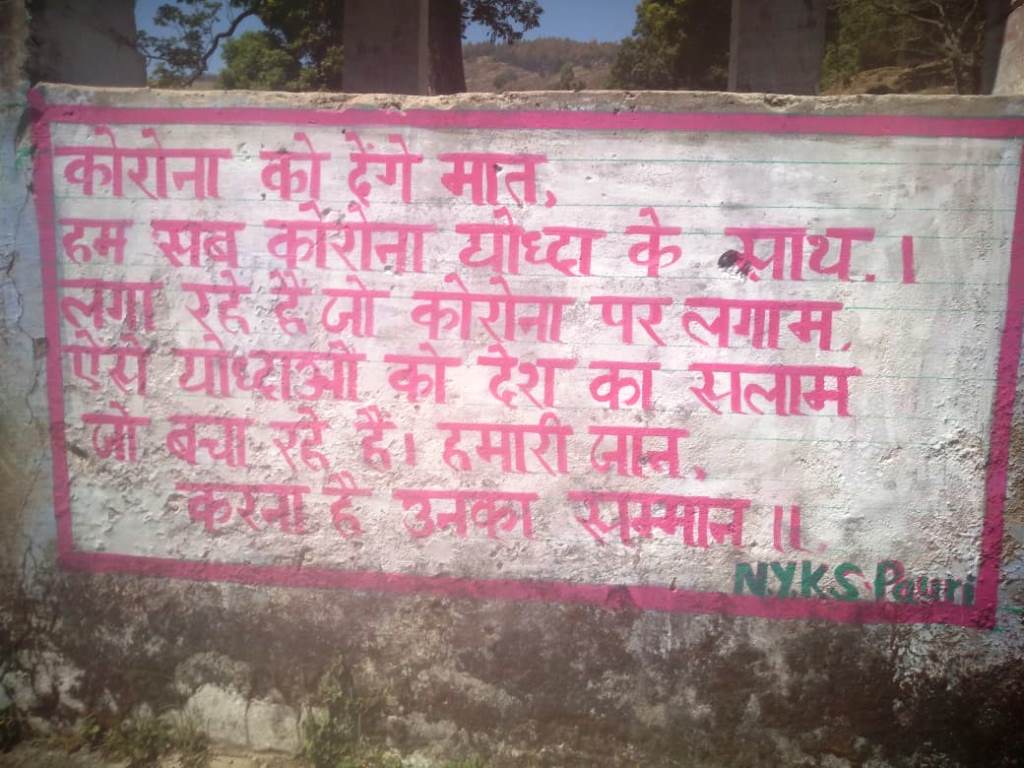 कोरोना को देंगे मात,
हम सब कोरोना योध्दा के साथ.।
लगा रहे हैं जो कोरोना पर लगाम,
ऐसे योध्दाओ को देश का सलाम
जो बचा रहे है। हमारी जान,
करना है उनका सम्मान।।
N.Y.K.S. Pauri